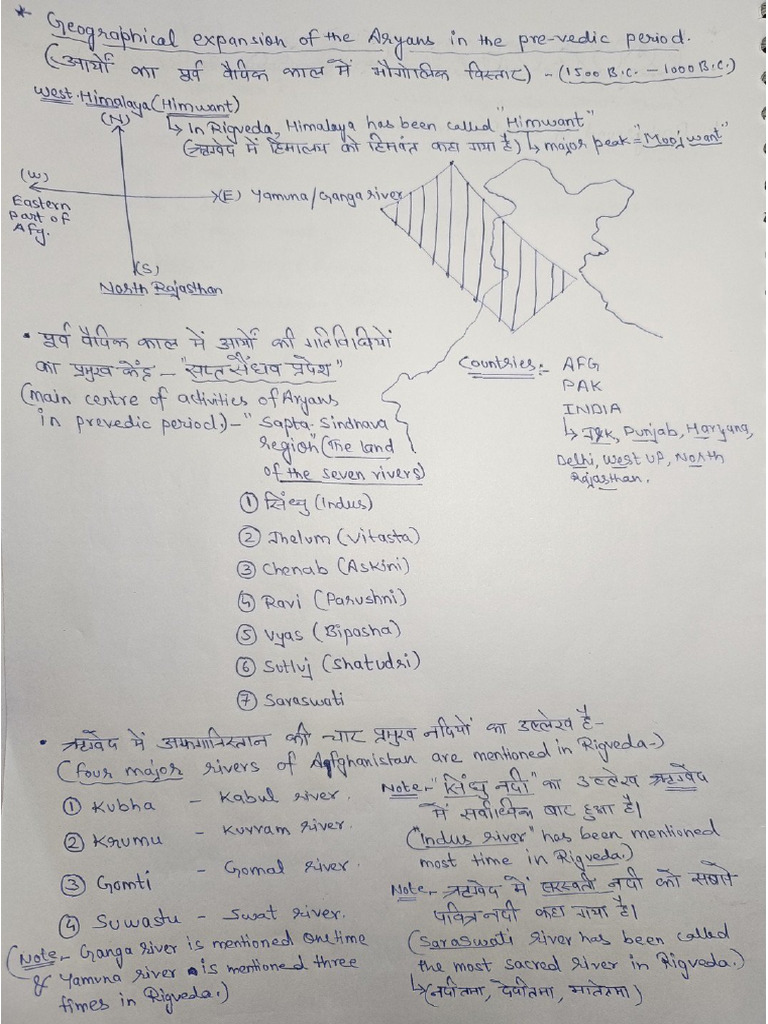 * Geographical expansion of the Aryans in the pre-vedic period.
(आर्यों का पूर्व वैदिक काल में भौगोलिक विस्तार) - (1500 B.C. - 1000 B.C.)
West Himalaya (Himwant)
↳ In Rigveda, Himalaya has been called "Himwant"
(ऋग्वेद में हिमालय को हिमवंत कहा गया है) ↳ major peak = "Moojwant"
(N)
(W)
Eastern
Part of
Afg.
(E) Yamuna/Ganga river
(S)
North Rajasthan
• पूर्व वैदिक काल में आर्यों की गतिविधियों
का प्रमुख केंद्र - "सप्त सैंधव प्रदेश"
(main centre of activities of Aryans
in prevedic period.) - "Sapta-Sindhava
region" (The land
of the seven rivers)
① सिंधु (Indus)
② Jhelum (Vitasta)
③ Chenab (Askini)
④ Ravi (Parushni)
⑤ Vyas (Bipasha)
⑥ Sutluj (Shatudri)
⑦ Saraswati
Countries:- AFG
PAK
INDIA
↳ J&K, Punjab, Haryana,
Delhi, West UP, North
Rajasthan.
• ऋग्वेद में अफगानिस्तान की चार प्रमुख नदियों का उल्लेख है-
(four major rivers of Afghanistan are mentioned in Rigveda-)
① Kubha - Kabul river.
② Krumu - Kurram river.
③ Gomti - Gomal river.
④ Suwastu - Swat river.
(Note - Ganga river is mentioned one time
& Yamuna river is mentioned three
times in Rigveda.)
Note- "सिंधु नदी" का उल्लेख ऋग्वेद
में सर्वाधिक बार हुआ है।
("Indus river" has been mentioned
most time in Rigveda.)
Note- ऋग्वेद में सरस्वती नदी को सबसे
पवित्र नदी कहा गया है।
(Saraswati river has been called
the most sacred river in Rigveda.)
↳ (नदीतमा, देवीतमा, मातेतमा)